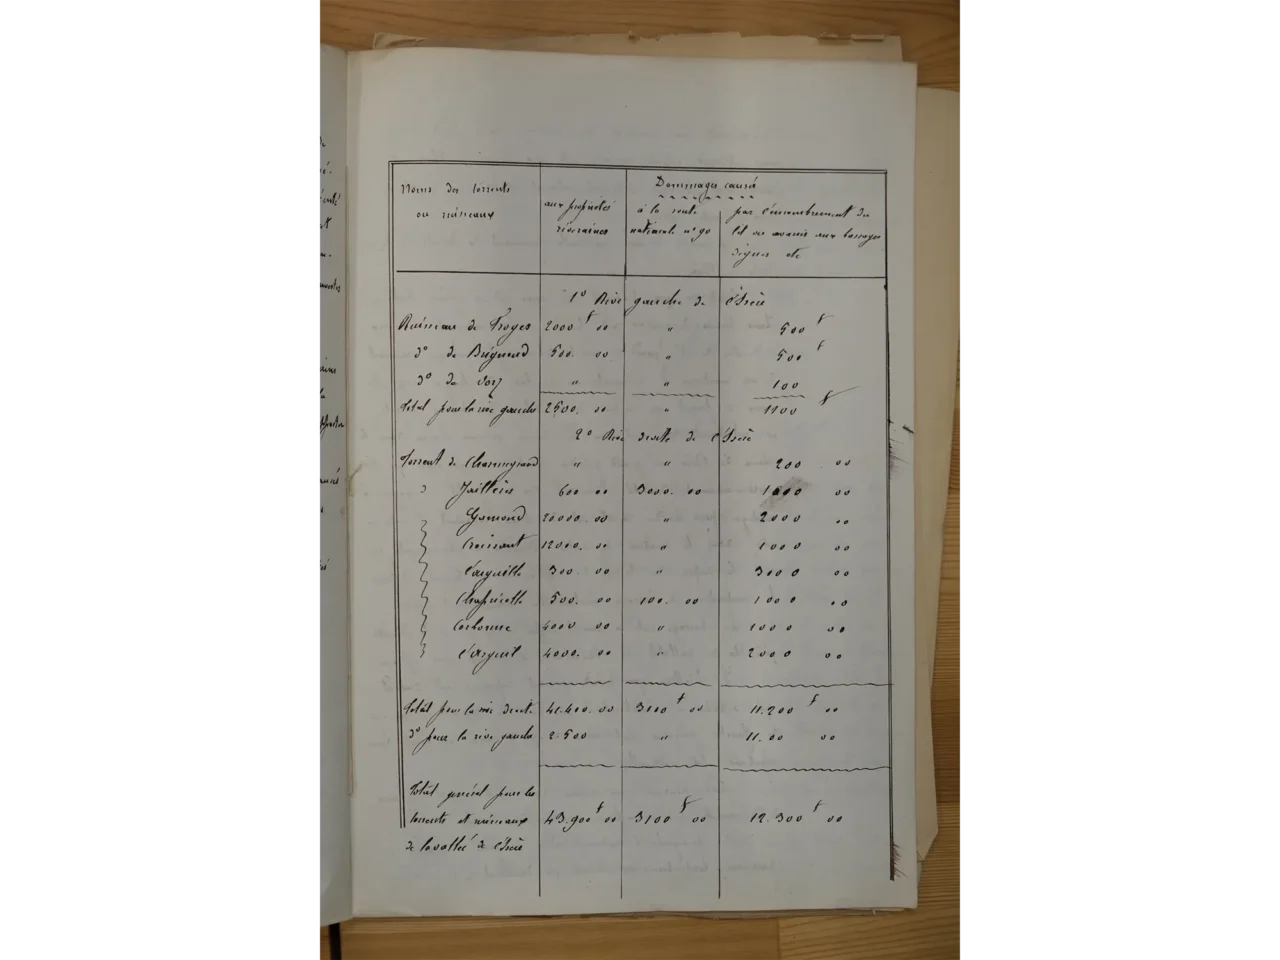 Noms des torrents
ou ruisseaux
Dommages causés
aux propriétés
riveraines
à la route
nationale n° 90
par l'encombrement du
lit ou avaries aux barrages
digues etc
1° Rive gauche de l'Isère
Ruisseau de Froges 2000 f 00 " 500 f
d° de Brignoud 500. 00 " 500 f
d° de " " 100
Total pour la rive gauche 2500. 00 " 1100 f
2° Rive droite de l'Isère
Torrent de " " 200 00
" Jaillères 600 00 3000. 00 1000 00
Gamond 20000. 00 " 2000 00
Craissant 12000. 00 " 1000 00
300. 00 " 3000 00
500. 00 100. 00 1000 00
Corbonne 4000 00 " 1000 00
4000. 00 " 2000 00
Total pour la rive droite 41.400. 00 3100 f 00 11.200 f 00
d° pour la rive gauche 2.500 " 11.00 00
Total général pour les
torrents et ruisseaux 43.900 f 00 3100 f 00 12.300 f 00
de la vallée de l'Isère